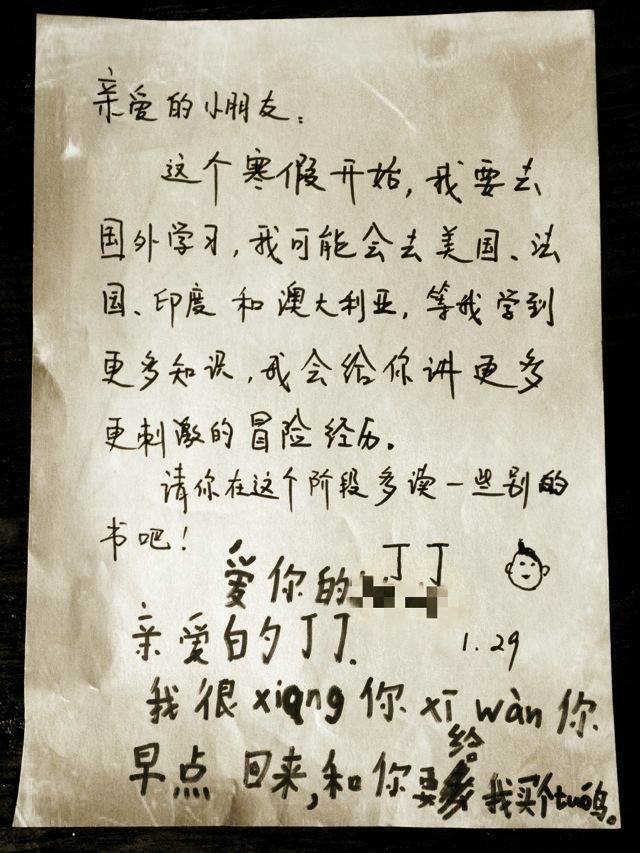 亲爱的小朋友：
这个寒假开始，我要去
国外学习，我可能会去美国、法
国、印度和澳大利亚，等我学到
更多知识，我会给你讲更多
更刺激的冒险经历。
请你在这个阶段多读一些别的
书吧！
爱你的丁丁
亲爱的丁丁.
1.29
我很xiang你xī wàn你
早点 回来,和你要给我买个tuō鸟。